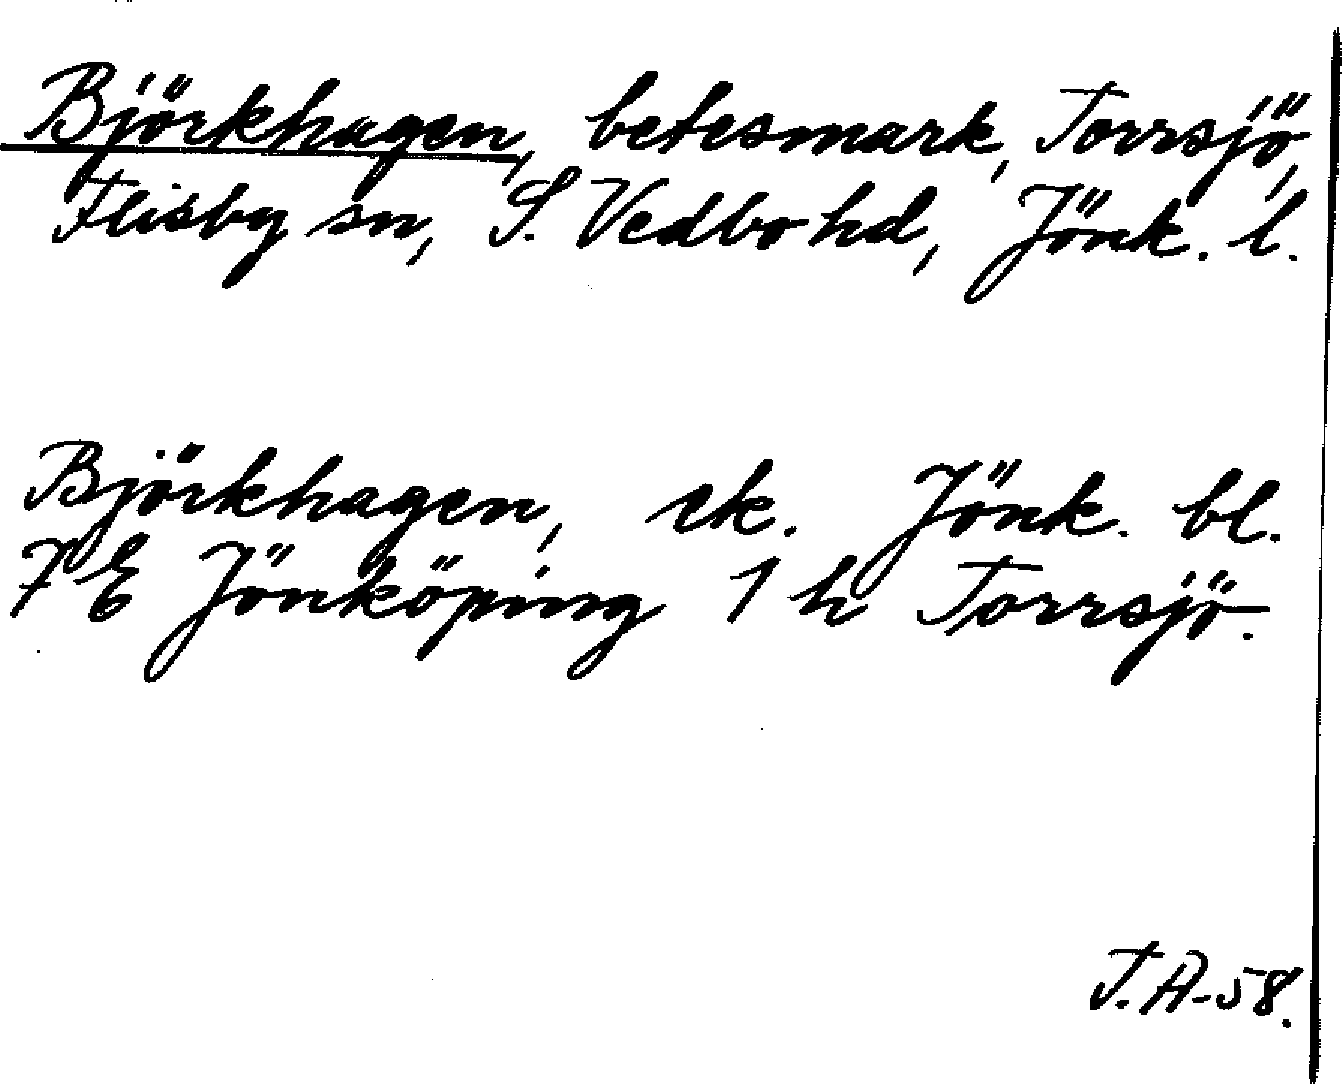 Björkhagen, betesmark, Torrsjö,
Flisby sn, S. Vedbo hd, Jönk. l.
Björkhagen, ek. Jönk. bl.
7 E Jönköping 1 h Torrsjö.
T. A-58.